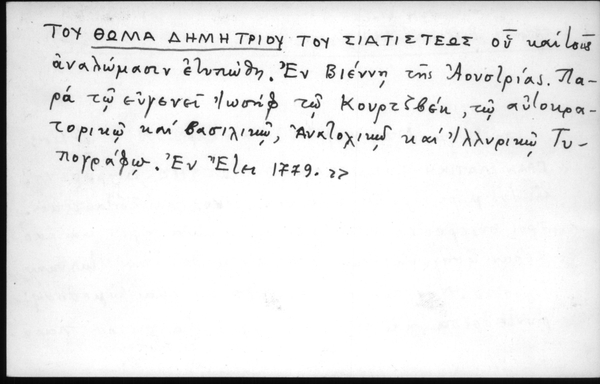 ΤΟΥ ΘΩΜΑ ΔΗΜΗΤΡΙΟΥ ΤΟΥ ΣΙΑΤΙΣΤΕΩΣ οὗ καί τοῖς
ἀναλώμασιν ἐτυπώθη. Ἐν Βιέννῃ τῆς Ἀουστρίας. Πα-
ρά τῷ εὐγενεῖ Ἰωσήφ τῷ Κουρτζβέκ, τῷ αὐτοκρα-
τορικῷ καί βασιλικῷ, Ἀνατολικῷ καί Ἰλλυρικῷ Τυ-
πογράφῳ. Ἐν Ἔτει 1779. >>